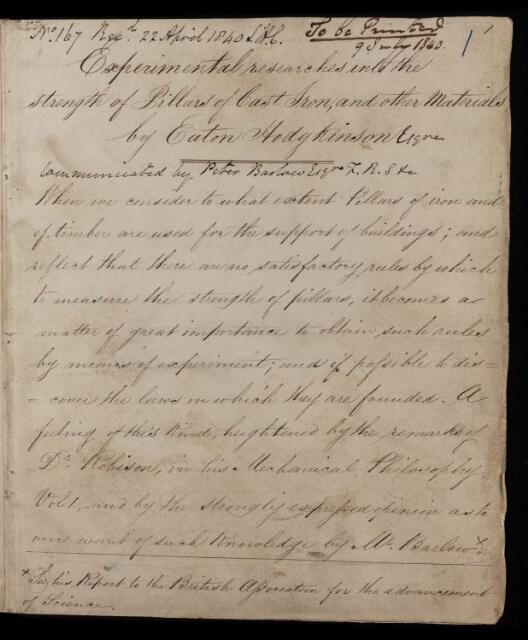 No. 167 Recd. 22 April 1840 S.H.C.
To be Printed
9 July 1840.
1
Experimental researches into the
strength of Pillars of Cast Iron, and other Materials
by Eaton Hodgkinson Esqre
Communicated by Peter Barlow Esqre F.R.S &c
When we consider to what extent Pillars of iron and
of timber are used for the support of buildings; and
reflect that there are no satisfactory rules by which
to measure the strength of pillars, it becomes a
matter of great importance to obtain such rules
by means of experiment; and if possible to dis=
= cover the laws on which they are founded. A
feeling of this kind, heightened by the remarks of
Dr. Robison, in his Mechanical Philosophy
Vol 1, and by the strongly expressed opinion as to
our want of such knowledge by Mr. Barlow x in
x In his Report to the British Association for the advancement
of Science.